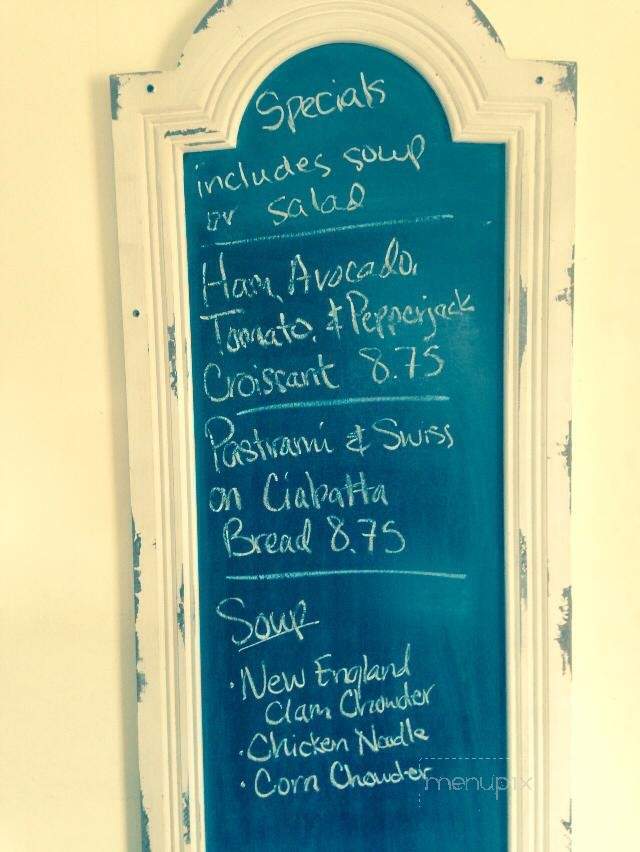 Specials
includes soup
or salad
Ham, Avocado,
Tomato, & Pepperjack
Croissant 8.75
Pastrami & Swiss
on Ciabatta
Bread 8.75
Soup
• New England
Clam Chowder
• Chicken Noodle
• Corn Chowder
menupix